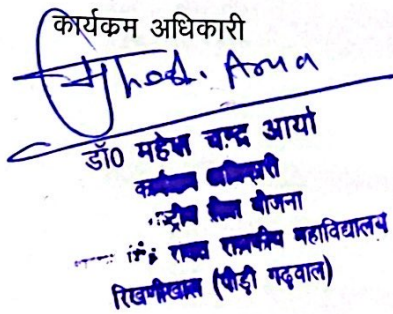 कार्यकम अधिकारी
डॉ0 महेश चन्द्र आर्या
कार्यक्रम अधिकारी
सेवा योजना
राजकीय महाविद्यालय
रिखणीखाल (पौड़ी गढ़वाल)